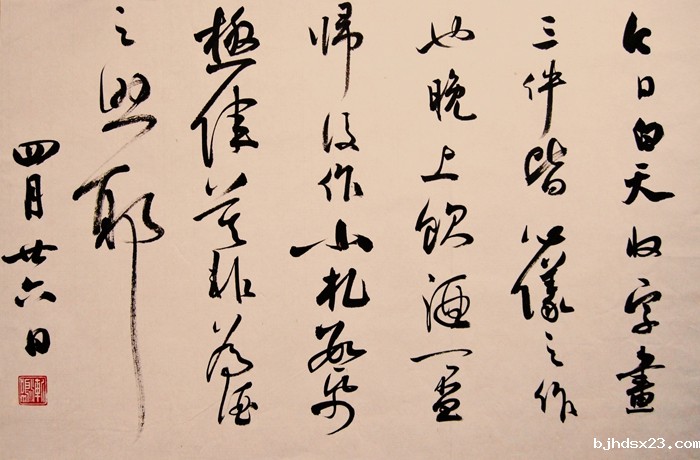 今日白天收字畫
三件皆心儀之作
也晚上飲酒一壺
歸後作小札數紙
極佳莫非為酒
之興耶
四月廿六日
bjhdsx23.com